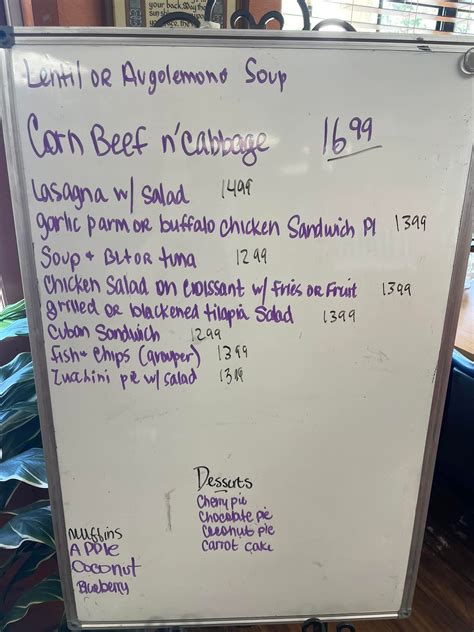 your back. May the
sun shine
Lentil or Avgolemono Soup
Corn Beef n' Cabbage 16 99
Lasagna w/ salad 14 99
garlic parm or buffalo chicken Sandwich Pl 13 99
Soup + Blt or tuna 12 99
Chicken Salad on croissant w/ fries or Fruit 13 99
grilled or blackened tilapia Salad 13 99
Cuban Sandwich 12 99
fish + chips (grouper) 13 99
Zucchini pie w/ salad 13 99
Desserts
Cherry pie
Chocolate pie
Coconut pie
Carrot cake
muffins
APPle
Coconut
Blueberry